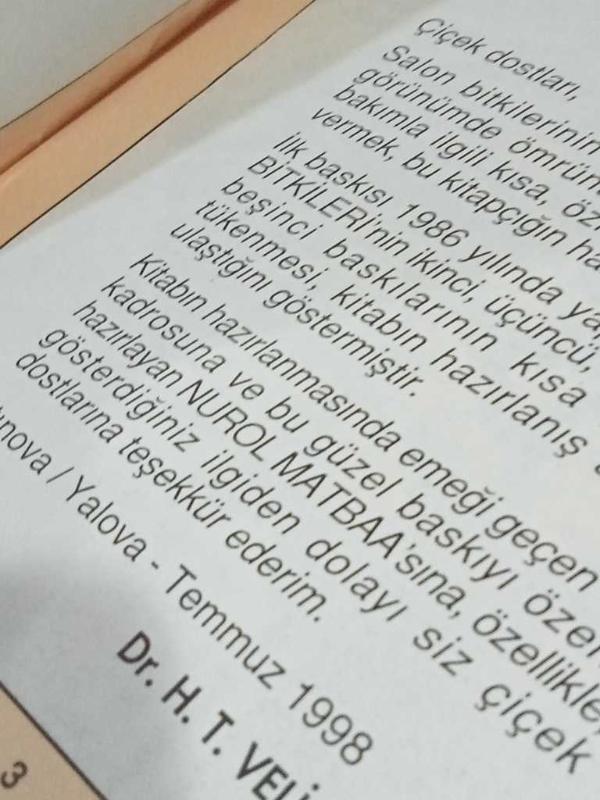 Çiçek dostları,
Salon bitkilerinin
görünümde
bakımla ilgili kısa,
vermek, bu kitapçığın
İlk baskısı 1986 yılında
BİTKİLERİ'nin ikinci, üçüncü,
beşinci baskılarının kısa
tükenmesi, kitabın hazırlanış
ulaştığını göstermiştir.
Kitabın hazırlanmasında emeği geçen
kadrosuna ve bu güzel baskıyı
hazırlayan NUROL MATBAA'sına, özellikle,
gösterdiğiniz ilgiden dolayı siz çiçek
dostlarına teşekkür ederim.
/ Yalova - Temmuz 1998
Dr. H. T.
3